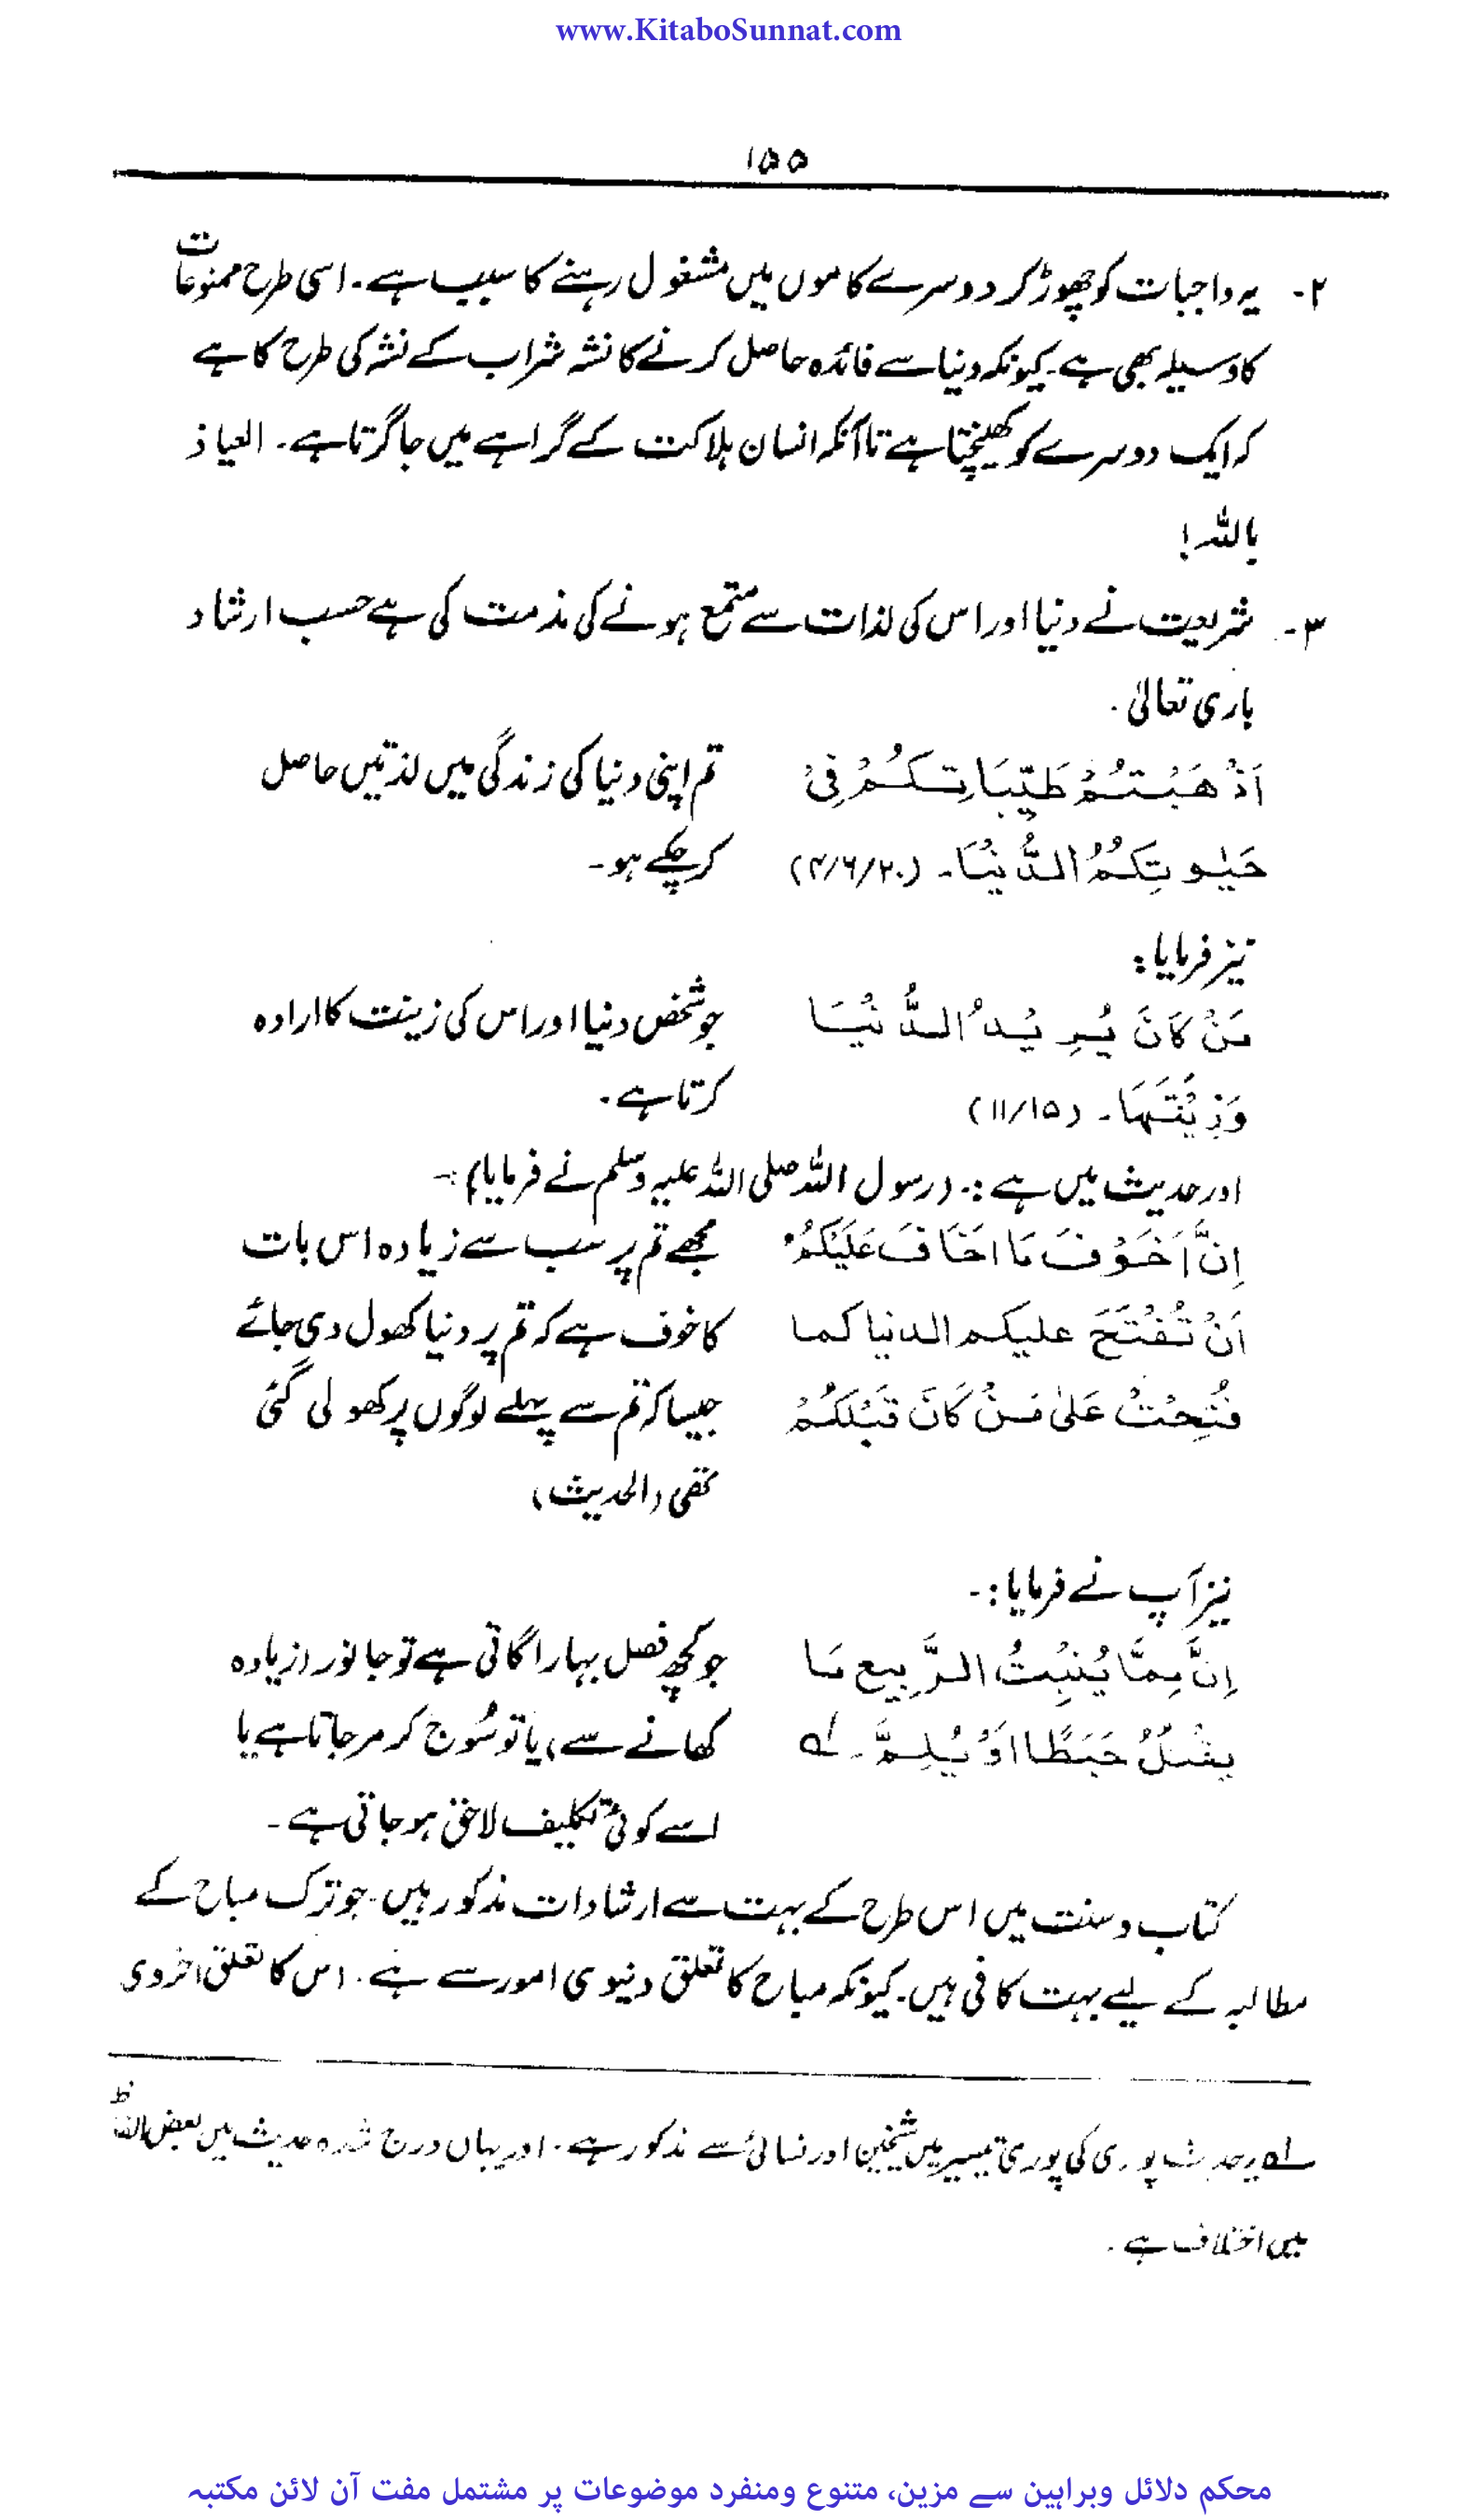 www.KitaboSunnat.com
۱۵۵
۲- یہ واجبات کو چھوڑ کر دوسرے کاموں میں مشغول رہنے کا سبب ہے۔ اسی طرح ممنوعات
کا وسیلہ بھی ہے۔ کیونکہ دنیا سے فائدہ حاصل کرنے کا نشہ شراب کے نشہ کی طرح کا ہے
کہ ایک دوسرے کو کھینچتا ہے تا آنکہ انسان ہلاکت کے گراہے میں جا گرتا ہے۔ العیاذ
باللہ!
۳- شریعت نے دنیا اور اس کی لذات سے متمتع ہونے کی مذمت کی ہے حسب ارشاد
باری تعالیٰ۔
اَذْهَبْتُمْ طَيِّبَاتِكُمْ فِىْ تم اپنی دنیا کی زندگی میں لذتیں حاصل
حَيٰوتِكُمُ الدُّنْيَا۔ (۴/۶/۲۰) کر چکے ہو۔
نیز فرمایا:
مَنْ كَانَ يُرِيْدُ الدُّنْيَا جو شخص دنیا اور اس کی زینت کا ارادہ
وَزِيْنَتَهَا۔ (۱۱/۱۵) کرتا ہے۔
اور حدیث میں ہے:۔ (رسول اللہ صلی اللہ علیہ وسلم نے فرمایا):۔
اِنَّ اَخْوَفَ مَا اَخَافَ عَلَيْكُمْ مجھے تم پر سب سے زیادہ اس بات
اَنْ تُفْتَحَ عليكم الدنيا كما کا خوف ہے کہ تم پر دنیا کھول دی جائے
فُتِحَتْ عَلىٰ مَنْ كَانَ قَبْلَكُمْ جیسا کہ تم سے پہلے لوگوں پر کھولی گئی
تھی (الحدیث)
نیز آپ نے فرمایا:۔
اِنَّ مِمَّا يُنْبِتُ الرَّبِيع مَا جو کچھ فصل بہار اگاتی ہے تو جانور (زیادہ
يقْتُلُ حَبَطًا اَوْ يُلِمَّ۔ لہ کھانے سے) یا تو سُوج کر مر جاتا ہے یا
اسے کوئی تکلیف لاحق ہو جاتی ہے۔
کتاب و سنت میں اس طرح کے بہت سے ارشادات مذکور ہیں۔ جو ترک مباح کے
مطالبہ کے لیے بہت کافی ہیں۔ کیونکہ مباح کا تعلق دنیوی امور سے ہے۔ اس کا تعلق اخروی
لہ یہ حدیث پوری کی پوری تیسیر میں شیخین اور نسائی سے مذکور ہے۔ اور یہاں درج شدہ حدیث میں بعض الفاظ
میں اختلاف ہے۔
محکم دلائل وبراہین سے مزین، متنوع ومنفرد موضوعات پر مشتمل مفت آن لائن مکتبہ